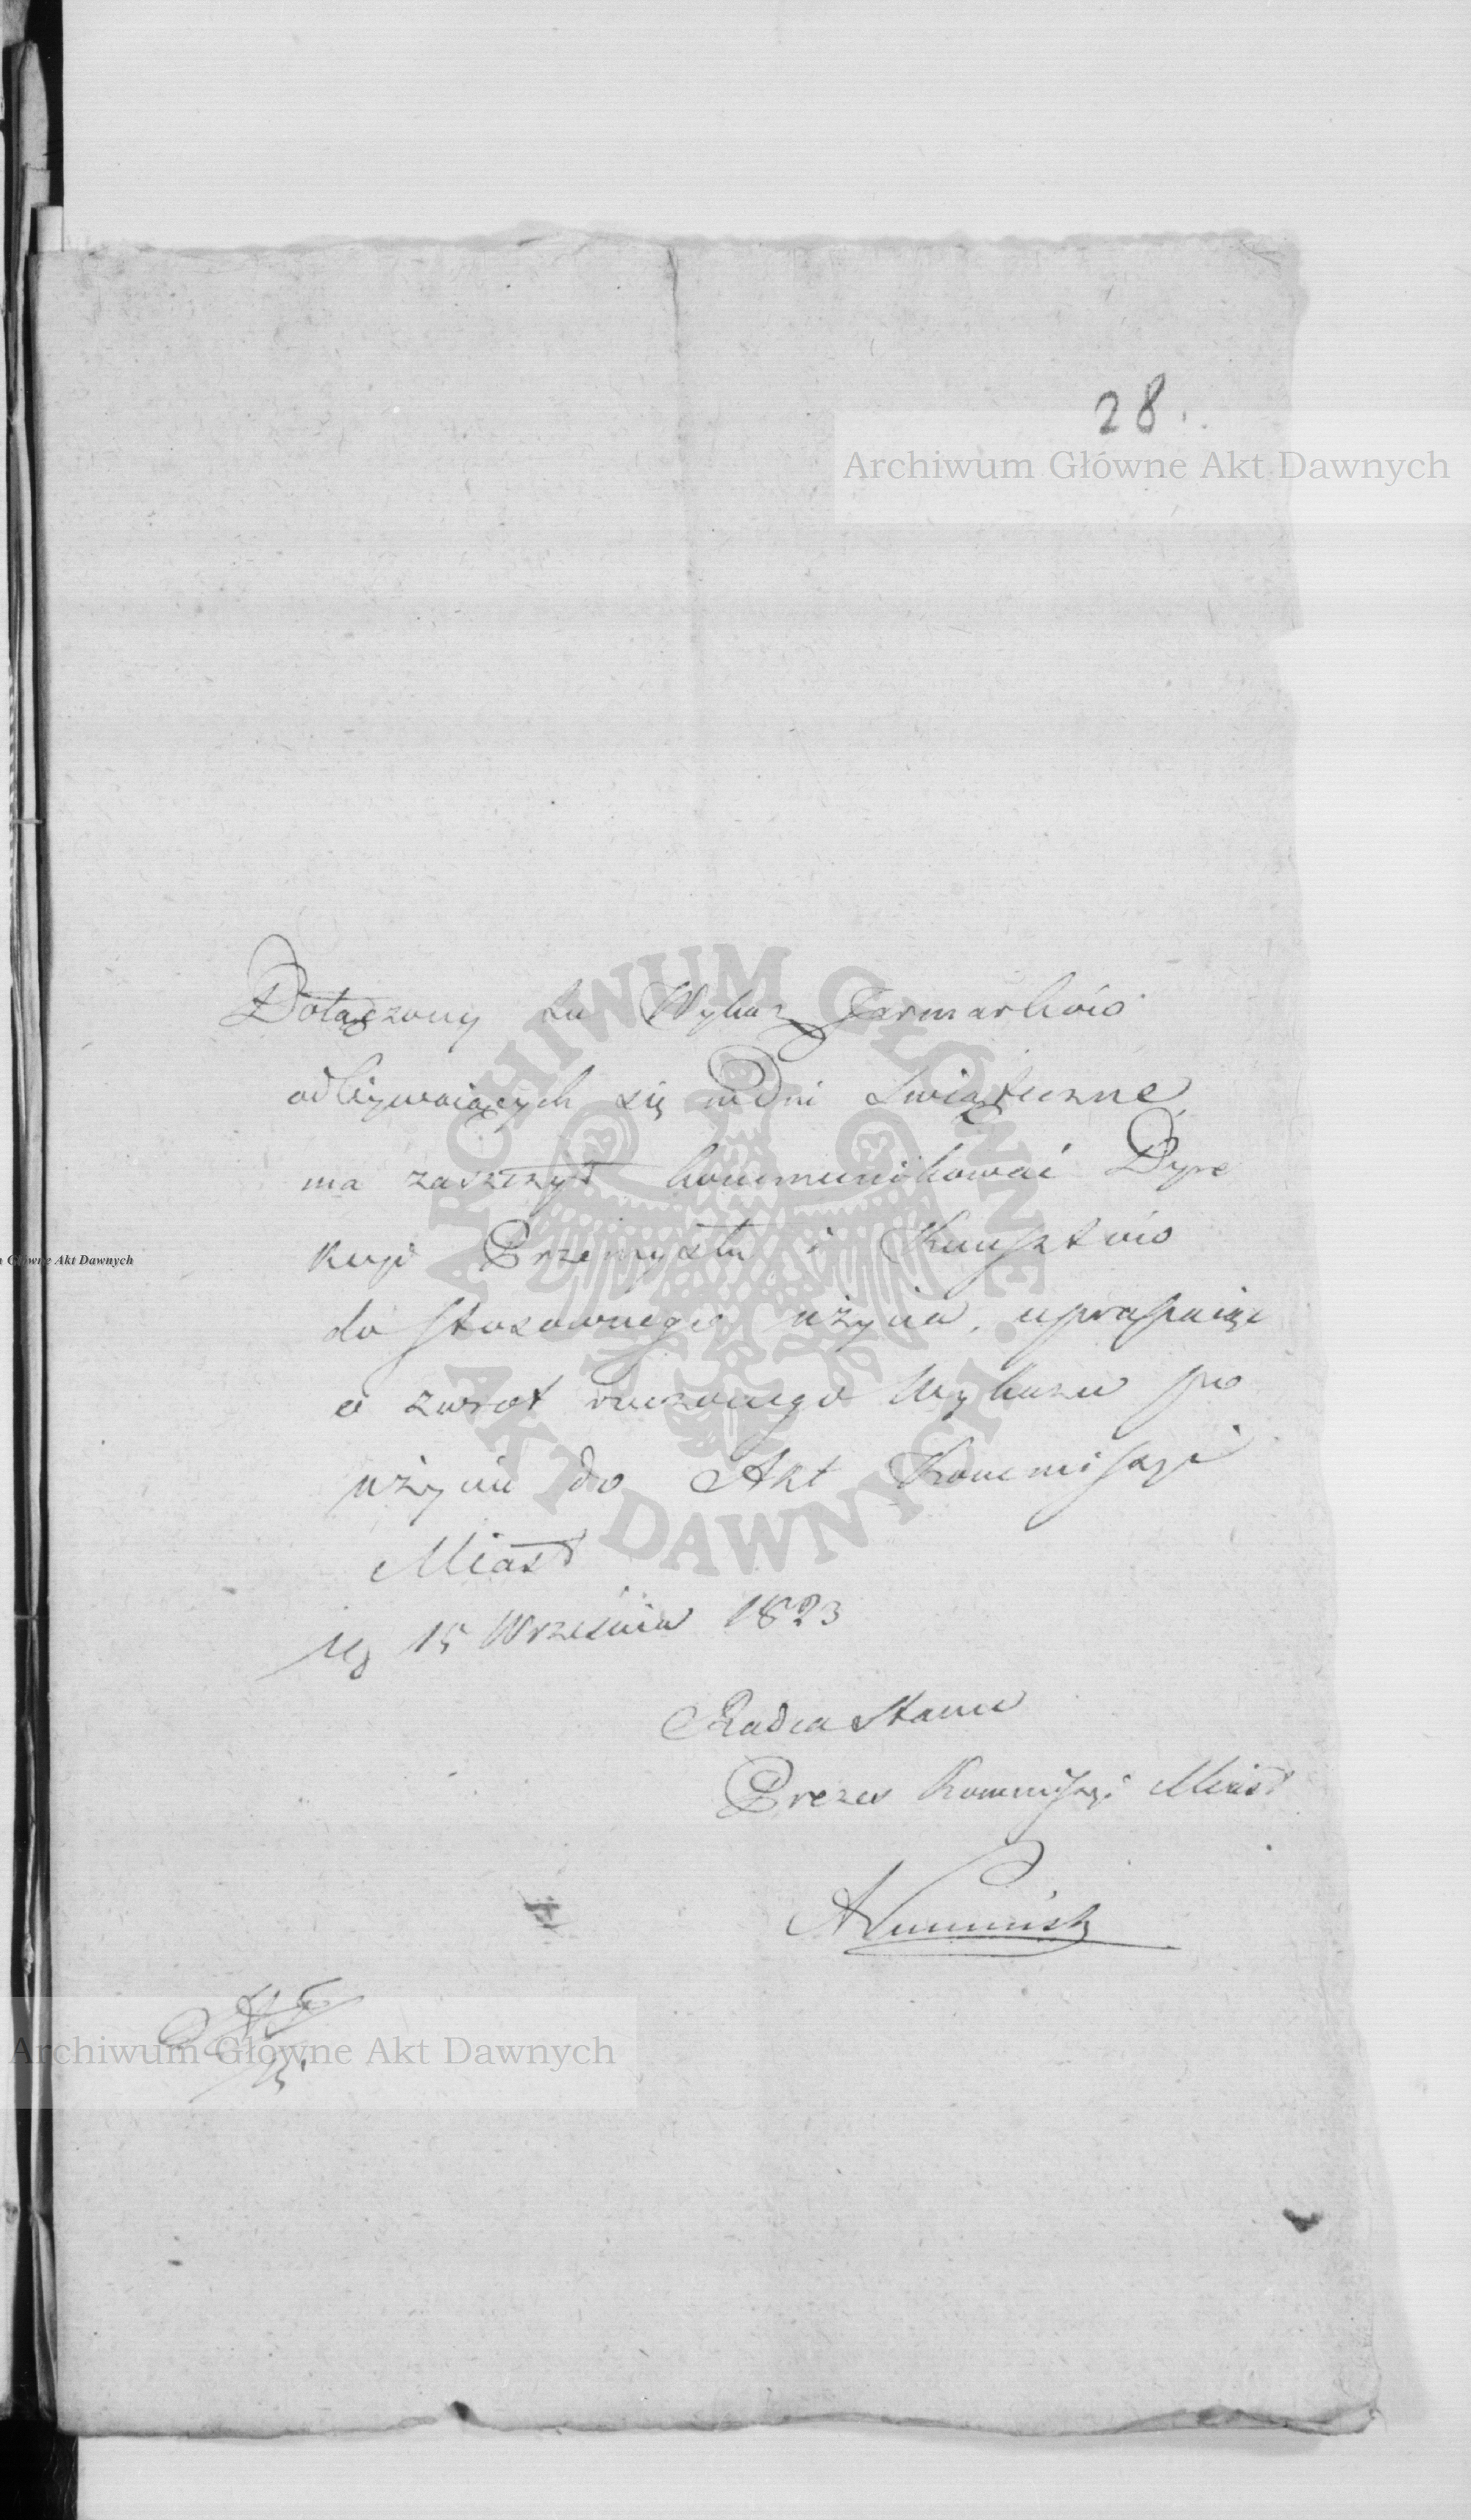 28.
Archiwum Główne Akt Dawnych
Dołączony tu Wykaz Jarmarków
odbywaiących się w Dni Swiąteczne
ma zaszczyt kommunikować Dyre
kcyi Przemysłu i Kunsztów
do stosownego użycia, upraszaiąc
o zwrot rzeczonego Wykazu po
użyciu do Akt Kommissyi
Miast
15 Września 1823
Radca Stanu
Prezes Kommissyi Miast
ARCHIWUM GŁÓWNE AKT DAWNYCH
Główne Akt Dawnych
Archiwum Główne Akt Dawnych